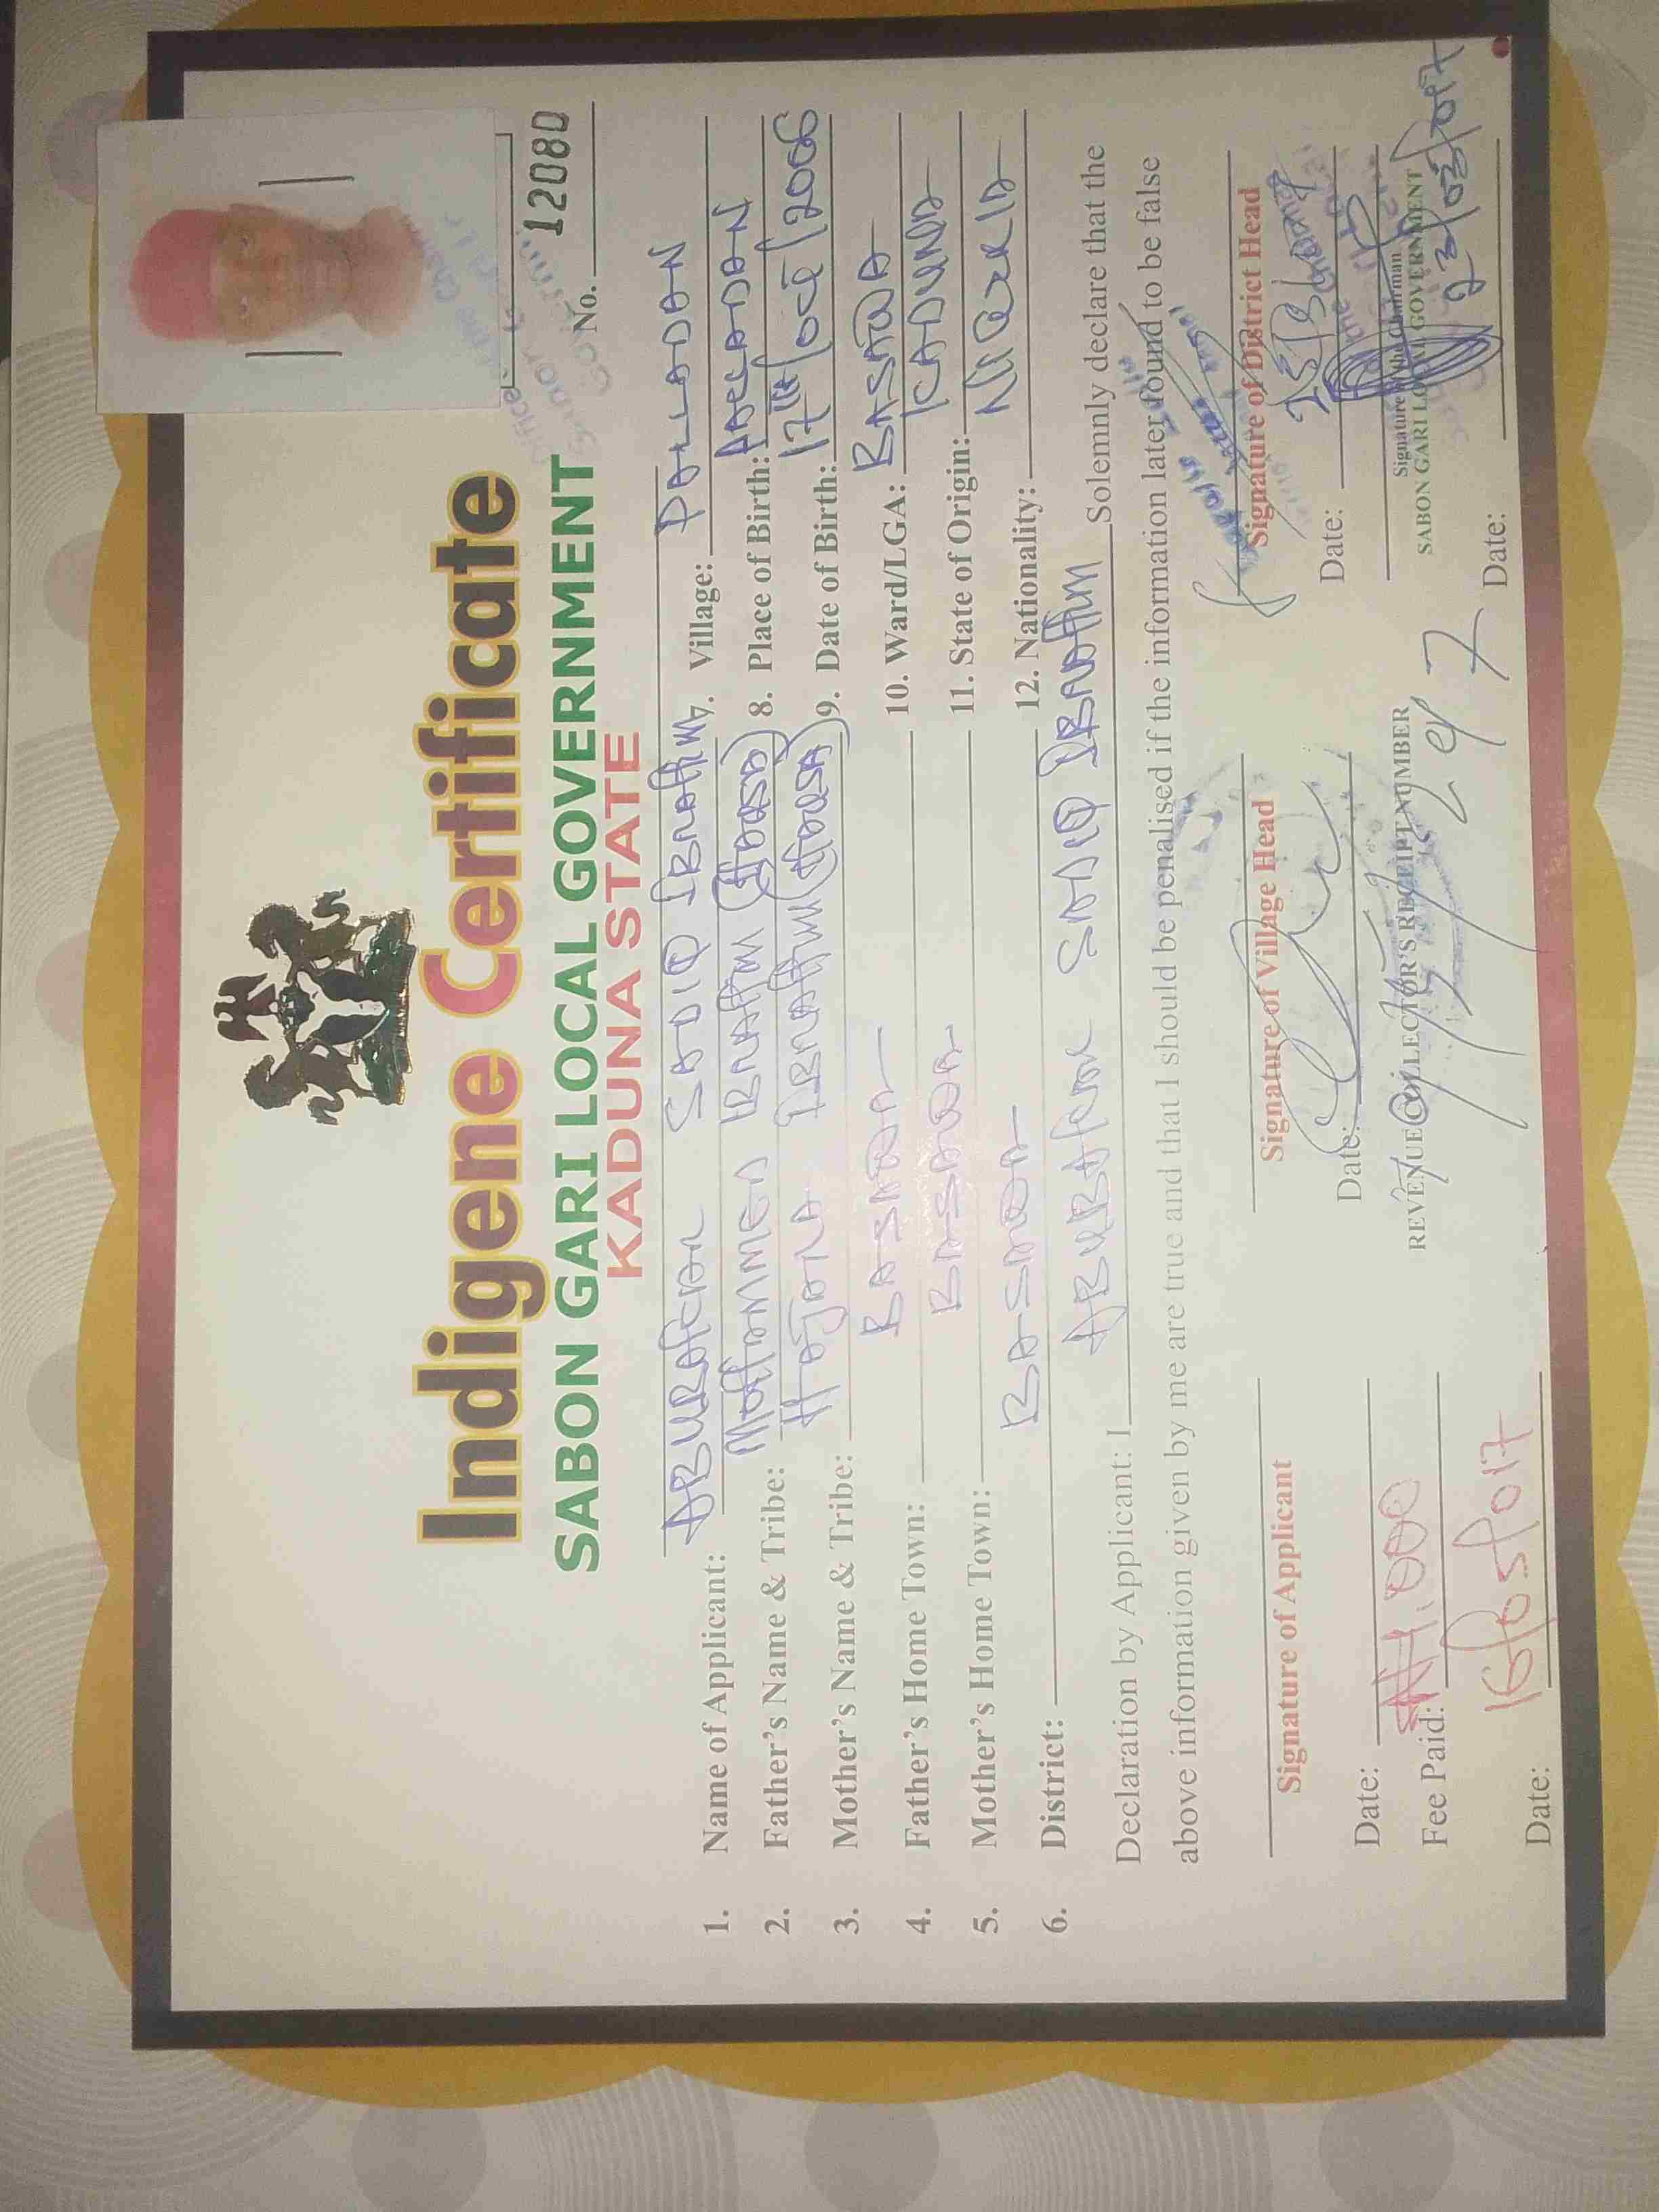 No. 12080
Indigene Certificate
SABON GARI LOCAL GOVERNMENT
KADUNA STATE
1. Name of Applicant: ABUBAKAR SADIQ IBRAHIM
2. Father's Name & Tribe: MOHAMMED IBRAHIM (HAUSA)
3. Mother's Name & Tribe: HAJARA IBRAHIM (HAUSA)
4. Father's Home Town: BASAWA
5. Mother's Home Town: BASAWA
6. District: BASAWA
7. Village: PALLADAN
8. Place of Birth: PALLADAN
9. Date of Birth: 17TH/OCT/2006
10. Ward/LGA: BASAWA
11. State of Origin: KADUNA
12. Nationality: NIGERIA
Declaration by Applicant: I ABUBAKAR SADIQ IBRAHIM Solemnly declare that the
above information given by me are true and that I should be penalised if the information later found to be false
Signature of Applicant
Signature of Village Head
Signature of District Head
Date:
Date:
Date:
Fee Paid: ₦1,000
REVENUE COLLECTOR'S RECEIPT NUMBER
Signature of the Chairman
SABON GARI LOCAL GOVERNMENT
Date: 16/03/017
Date: 23/03/017